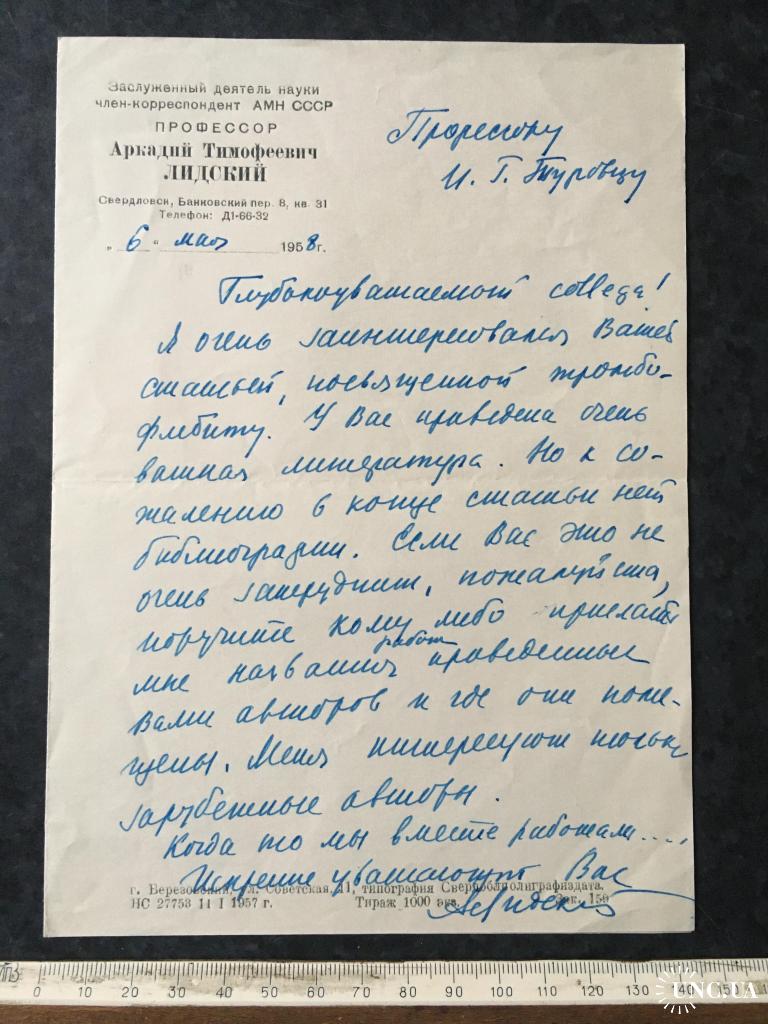 Заслуженный деятель науки
член-корреспондент АМН СССР
ПРОФЕССОР
Аркадий Тимофеевич
ЛИДСКИЙ
Свердловск, Банковский пер. 8, кв. 31
Телефон: Д1-66-32
„ 6 “ мая 1958 г.
Профессору
И. Г. Туровцу
Глубокоуважаемый collega!
Я очень заинтересовался Вашей
статьей, посвященной тромбо-
флебиту. У Вас приведена очень
важная литература. Но к со-
жалению в конце статьи нет
библиографии. Если Вас это не
очень затруднит, пожалуйста,
поручите кому либо прислать
мне названия работ приведенных
Вами авторов и где они поме-
щены. Меня интересуют только
зарубежные авторы.
Когда то мы вместе работали....
Искренне уважающий Вас
А. Лидский
г. Березовский, ул. Советская, 11, типография Свердоблполиграфиздата.
НС 27753 11 I 1957 г. Тираж 1000 экз. Зак. 159
0 10 20 30 40 50 60 70 80 90 100 110 120 130 140 150
UNC.UA